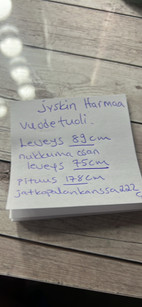 Jyskin Harmaa
vuodetuoli.
Leveys 89cm
nukkuma osan
leveys 75cm
pituus 178cm
jatkopalankanssa 222
c